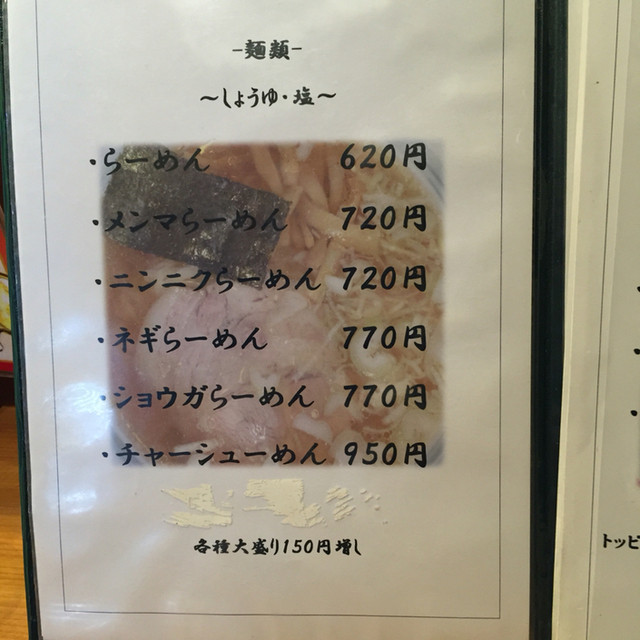 -麺類-
～しょうゆ・塩～
・らーめん 620円
・メンマらーめん 720円
・ニンニクらーめん 720円
・ネギらーめん 770円
・ショウガらーめん 770円
・チャーシューめん 950円
各種大盛り150円増し
トッピ